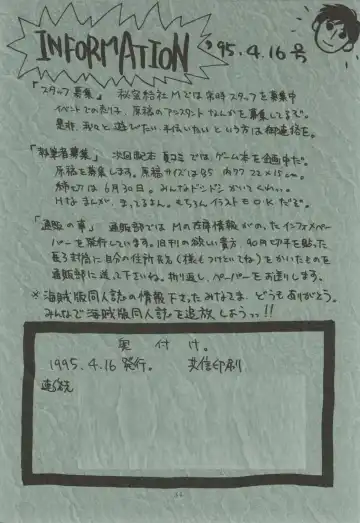 INFORMATION '95.4.16号
「スタッフ募集」 秘密結社Mでは常時スタッフを募集中
イベントでの売り子、原稿のアシスタントなんかを募集してるぞ。
是非、我々と遊びたい手伝いたいという方は御連絡を。
「執筆者募集」 次回配本夏コミではゲーム本を企画中だ。
原稿を募集します。原稿サイズはB5 内ワク22×15cm。
締切りは6月30日。みんなドンドンかいてくれい。
Hなまんが、まってるよん。もちろんイラストもOKだぞ。
「通販の事」 通販部ではMの在庫情報がのったインフォメペー
パーを発行しています。旧刊の欲しい貴方、90円切手を貼った
長3封筒に自分の住所氏名(様もつけといてね)をかいたものを
通販部に送って下さいね。折り返し、ペーパーをお送りします。
※海賊版同人誌の情報下さったみなさま、どうもありがとう。
みんなで海賊版同人誌を追放しようっ!!
奥付け。
1995.4.16発行。 共信印刷
連絡